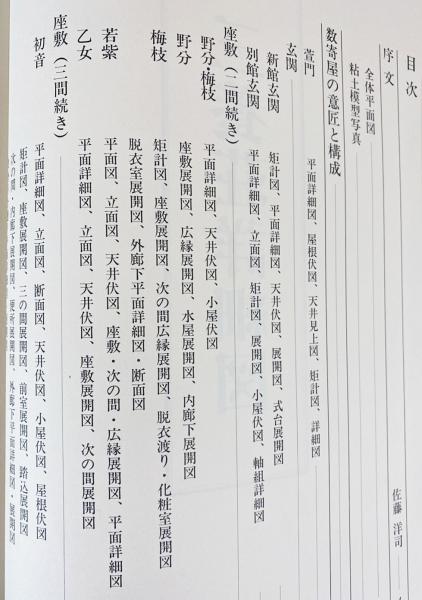 目次
序文 佐藤洋司
全体平面図
粘土模型写真
数寄屋の意匠と構成
萱門 平面詳細図、屋根伏図、天井見上図、矩計図、詳細図
玄関
新館玄関 矩計図、平面詳細図、天井伏図、展開図、式台展開図
別館玄関 平面詳細図、立面図、矩計図、展開図、小屋伏図、軸組詳細図
座敷（二間続き）
野分・梅枝 平面詳細図、天井伏図、小屋伏図
野分 座敷展開図、広縁展開図、水屋展開図、内廊下展開図
梅枝 矩計図、座敷展開図、次の間広縁展開図、脱衣渡り・化粧室展開図
脱衣室展開図、外廊下平面詳細図・断面図
若紫 平面図、立面図、天井伏図、座敷・次の間・広縁展開図、平面詳細図
乙女 平面詳細図、立面図、天井伏図、座敷展開図、次の間展開図
座敷（三間続き）
初音 平面詳細図、立面図、断面図、天井伏図、小屋伏図、屋根伏図
矩計図、座敷展開図、三の間展開図、前室展開図、踏込展開図
次の間・内廊下展開図、便所展開図、外廊下平面詳細図・展開図